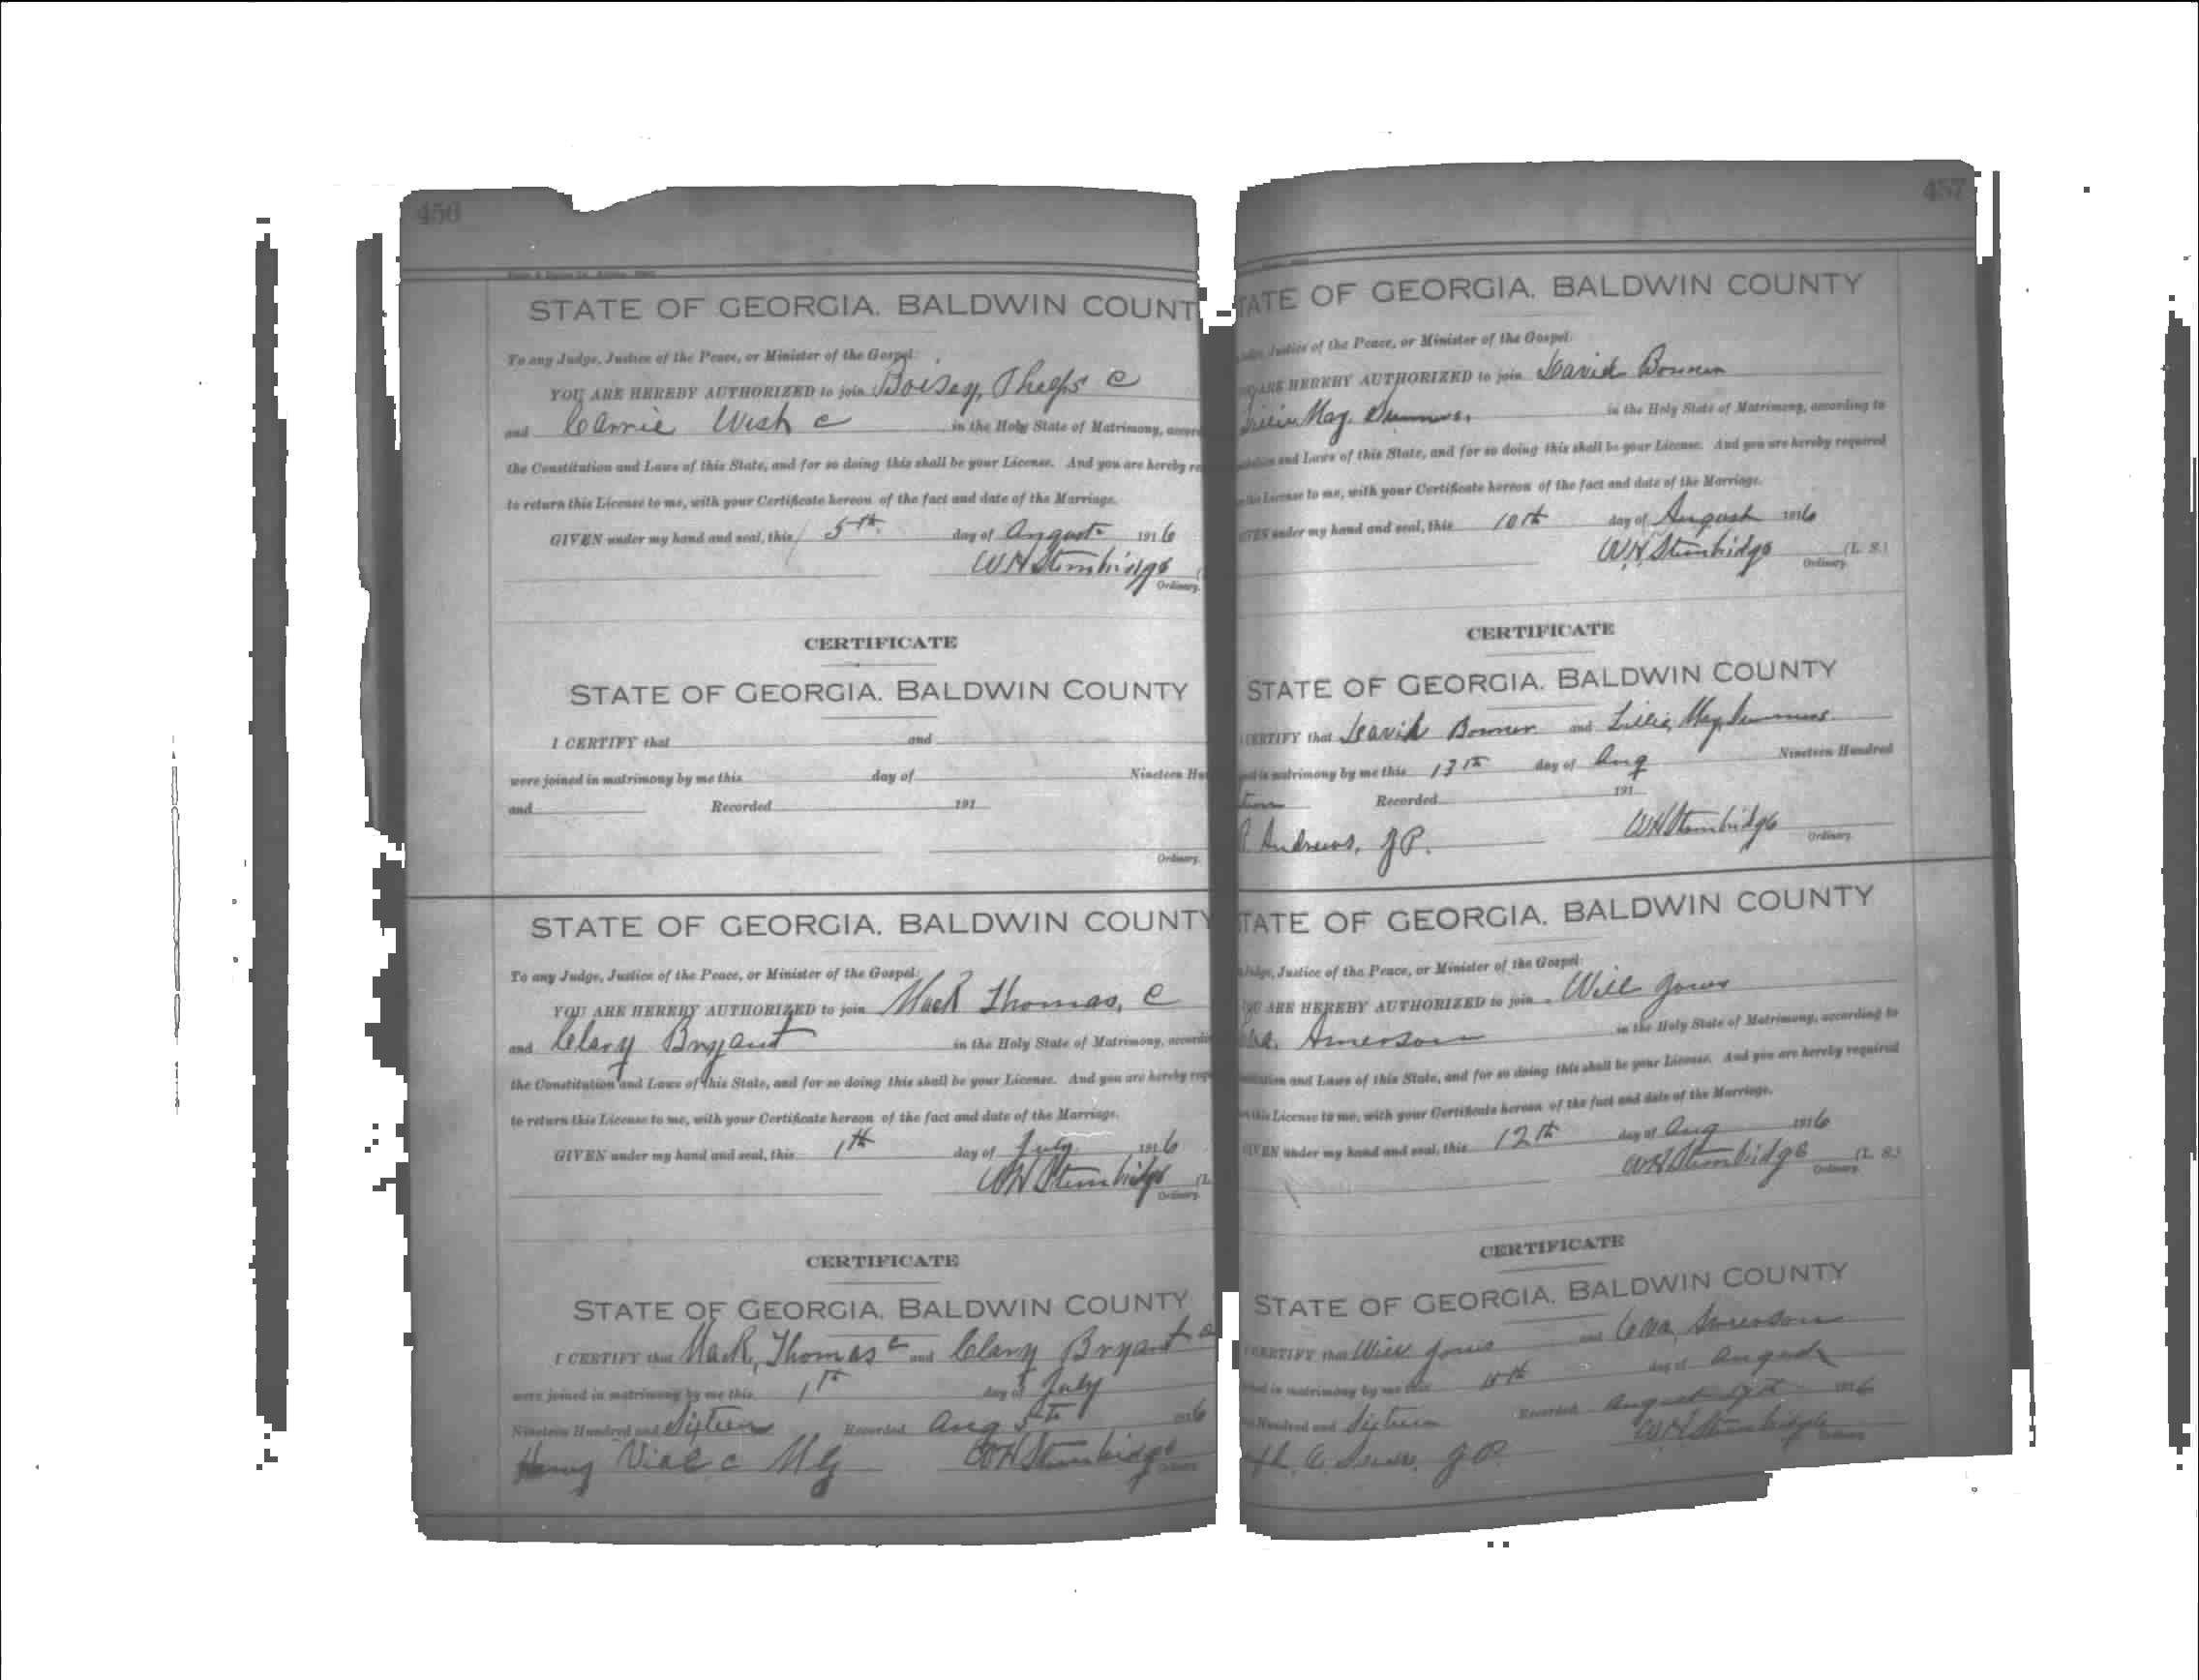 456
STATE OF GEORGIA. BALDWIN COUNT
To any Judge, Justice of the Peace, or Minister of the Gospel:
YOU ARE HEREBY AUTHORIZED to join Boisey, Phelps c
and Carrie Wish c in the Holy State of Matrimony, accor
the Constitution and Laws of this State, and for so doing this shall be your License. And you are hereby re
to return this License to me, with your Certificate hereon of the fact and date of the Marriage.
GIVEN under my hand and seal, this 5th day of August 1916
WH Stembridge
Ordinary.
CERTIFICATE
STATE OF GEORGIA. BALDWIN COUNTY
I CERTIFY that and
were joined in matrimony by me this day of Nineteen Hu
and Recorded 191
Ordinary.
STATE OF GEORGIA. BALDWIN COUNTY
To any Judge, Justice of the Peace, or Minister of the Gospel:
YOU ARE HEREBY AUTHORIZED to join Mack Thomas, C
and Clary Bryant in the Holy State of Matrimony, accordi
the Constitution and Laws of this State, and for so doing this shall be your License. And you are hereby requ
to return this License to me, with your Certificate hereon of the fact and date of the Marriage.
GIVEN under my hand and seal, this 1th day of July 1916
WH Stembridge (L
Ordinary.
CERTIFICATE
STATE OF GEORGIA. BALDWIN COUNTY
I CERTIFY that Mack, Thomas c and Clary Bryant c
were joined in matrimony by me this 1th day of July
Nineteen Hundred and Sixteen Recorded Aug 5th 1916
Henry Vial c MG WH Stembridge
457
TATE OF GEORGIA. BALDWIN COUNTY
Justice of the Peace, or Minister of the Gospel:
ARE HEREBY AUTHORIZED to join David Bonner
Lillie May in the Holy State of Matrimony, according to
and Laws of this State, and for so doing this shall be your License. And you are hereby required
License to me, with your Certificate hereon of the fact and date of the Marriage.
under my hand and seal, this 10th day of August 1916
W.H. Stembridge (L. S.)
Ordinary.
CERTIFICATE
STATE OF GEORGIA. BALDWIN COUNTY
CERTIFY that David Bonner and Lillie, May
in matrimony by me this 13th day of Aug Nineteen Hundred
Recorded 191
Andrews, JP. WH Stembridge
Ordinary.
TATE OF GEORGIA. BALDWIN COUNTY
Judge, Justice of the Peace, or Minister of the Gospel:
ARE HEREBY AUTHORIZED to join Will Jones
Amerson in the Holy State of Matrimony, according to
and Laws of this State, and for so doing this shall be your License. And you are hereby required
this License to me, with your Certificate hereon of the fact and date of the Marriage.
under my hand and seal, this 12th day of Aug 1916
WH Stembridge (L. S.)
Ordinary.
CERTIFICATE
STATE OF GEORGIA. BALDWIN COUNTY
CERTIFY that Will Jones and Eva, Amerson
in matrimony by me this day of August
Hundred and Sixteen Recorded August 1916
WH Stembridge
JP